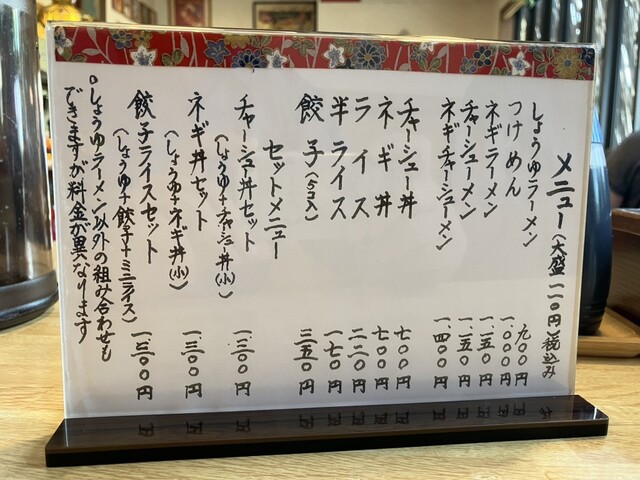 メニュー(大盛一一〇円)税込み
しょうゆラーメン 九〇〇円
つけめん 一、〇〇〇円
ネギラーメン 一、一五〇円
チャーシューメン 一、一五〇円
ネギチャーシューメン 一、四〇〇円
チャーシュー丼 七〇〇円
ネギ丼 七〇〇円
ライス 二二〇円
半ライス 一七〇円
餃子(5コ入) 三五〇円
セットメニュー
チャーシュー丼セット 一、三〇〇円
(しょうゆ+チャーシュー丼(小))
ネギ丼セット 一、三〇〇円
(しょうゆ+ネギ丼(小))
餃子ライスセット 一、三〇〇円
(しょうゆ+餃子+ミニライス)
○しょうゆラーメン以外の組み合わせも
できますが料金が異なります